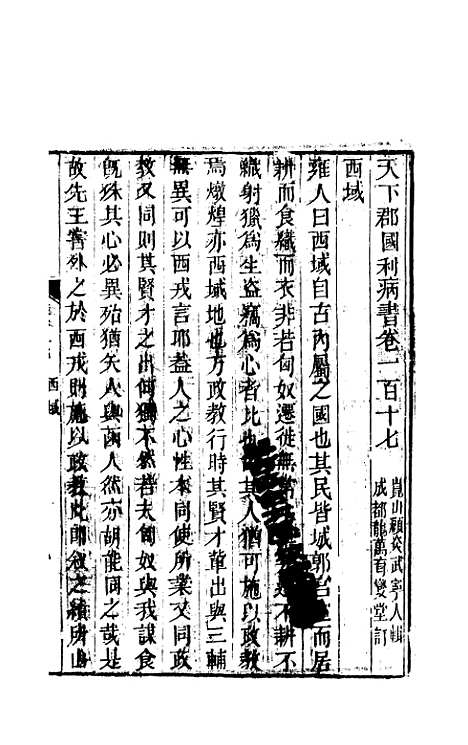 天下郡國利病書卷一百十七
崑山顧炎武寧人輯
成都龍萬育燮堂訂
西域
雍人曰西域自古內屬之國也其民皆城郭而居
耕而食織而衣非若匈奴遷徙無常不耕不
織射獵為生盜竊為心者比也其人猶可施以政教
焉燉煌亦西域地也方政教行時其賢才輩出與三輔
無異可以西戎言耶蓋人之心性本同使所業又同政
教又同則其賢才之出何獨不然若夫匈奴與我謀食
旣殊其心必異殆猶矢人與函人然亦胡能同之哉是
故先王嘗外之於西戎則施以政教此即叙之績所以
西域